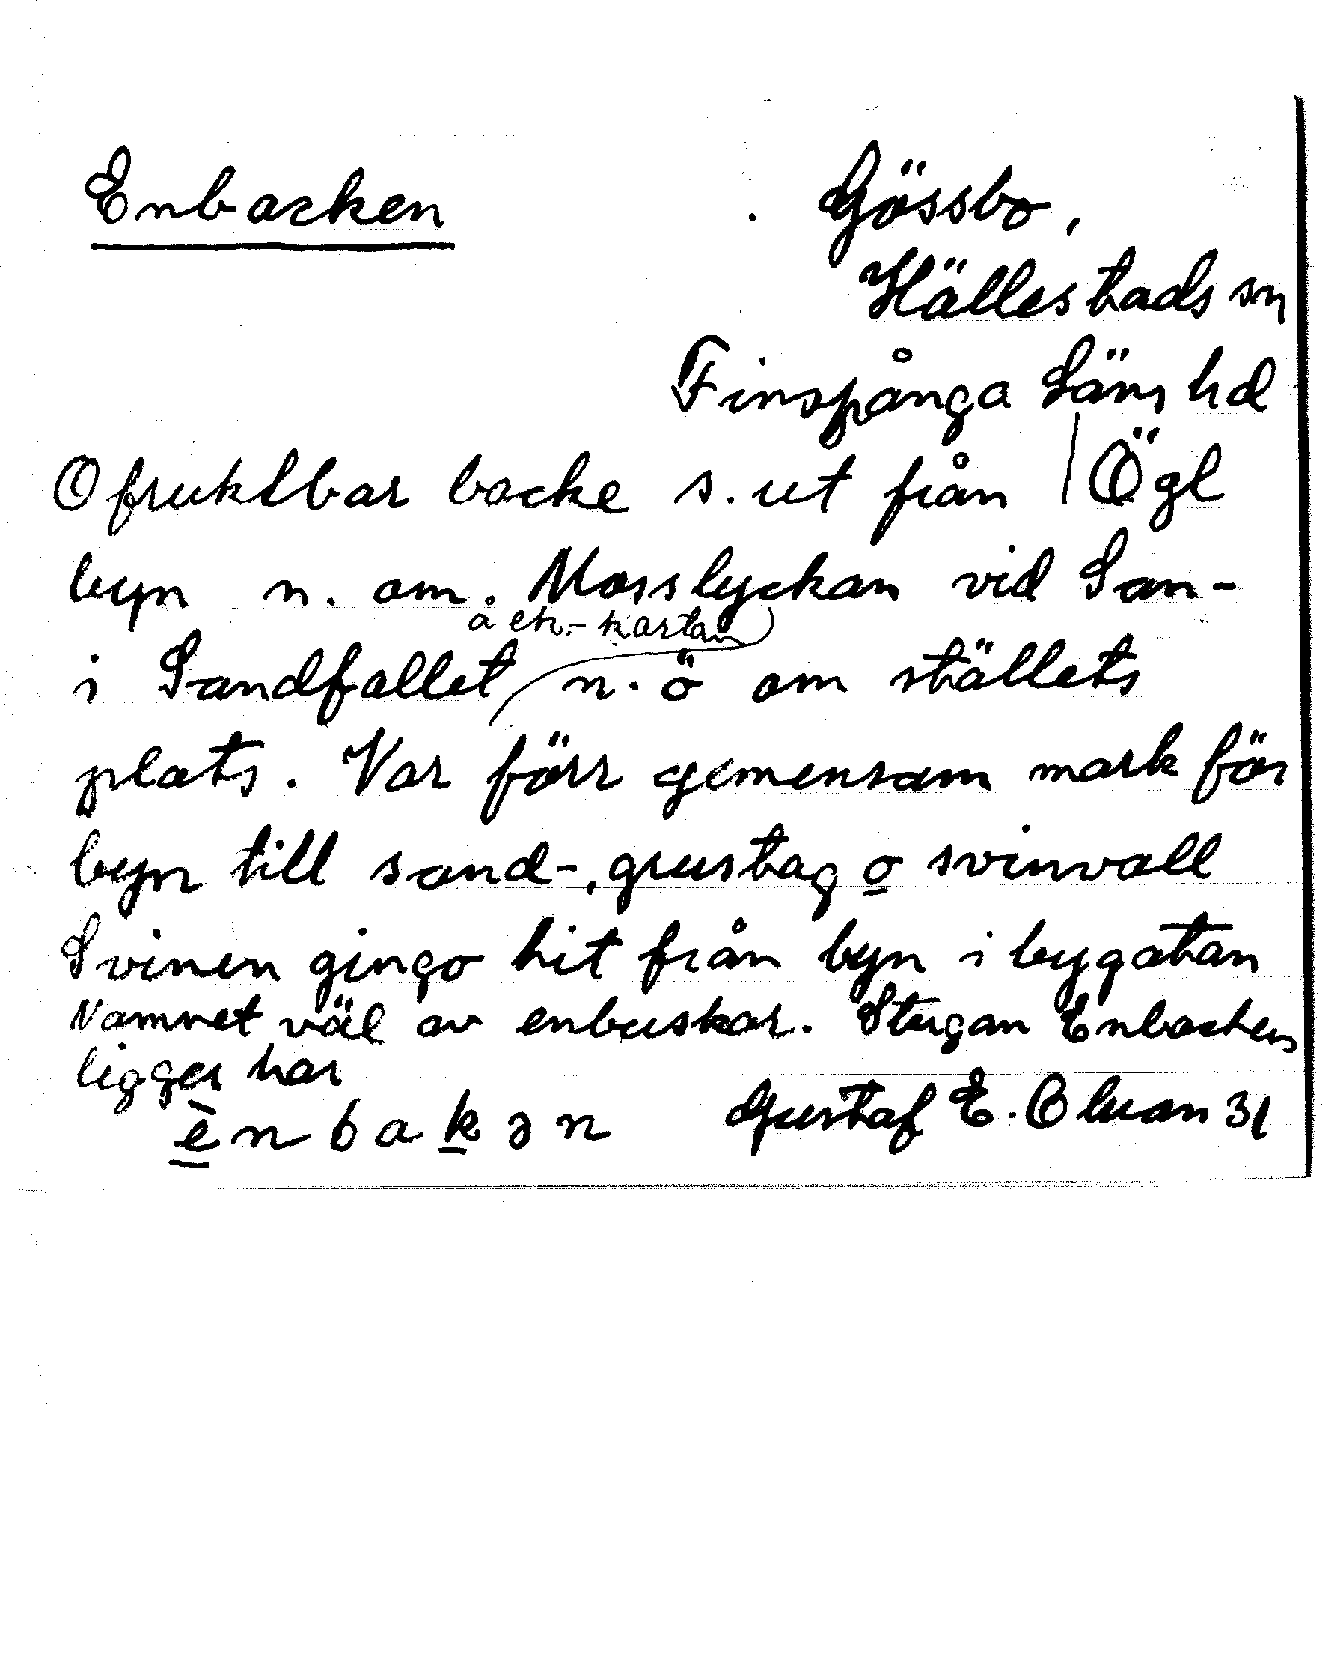 Enbacken
Gössbo,
Hällestads sn
Finspånga Läns hd
Ofruktbar backe s. ut från Ögl
byn n. om. Mosslyckan vid San-
å ek.-kartan
i Sandfallet n. ö om ställets
plats. Var förr gemensam mark för
byn till sand-, grustag o svinvall
Svinen gingo hit från byn i bygatan
Namnet väl av enbuskar. Stugan Enbacken
ligger här
ènbakən Gustaf E. Olsson 31